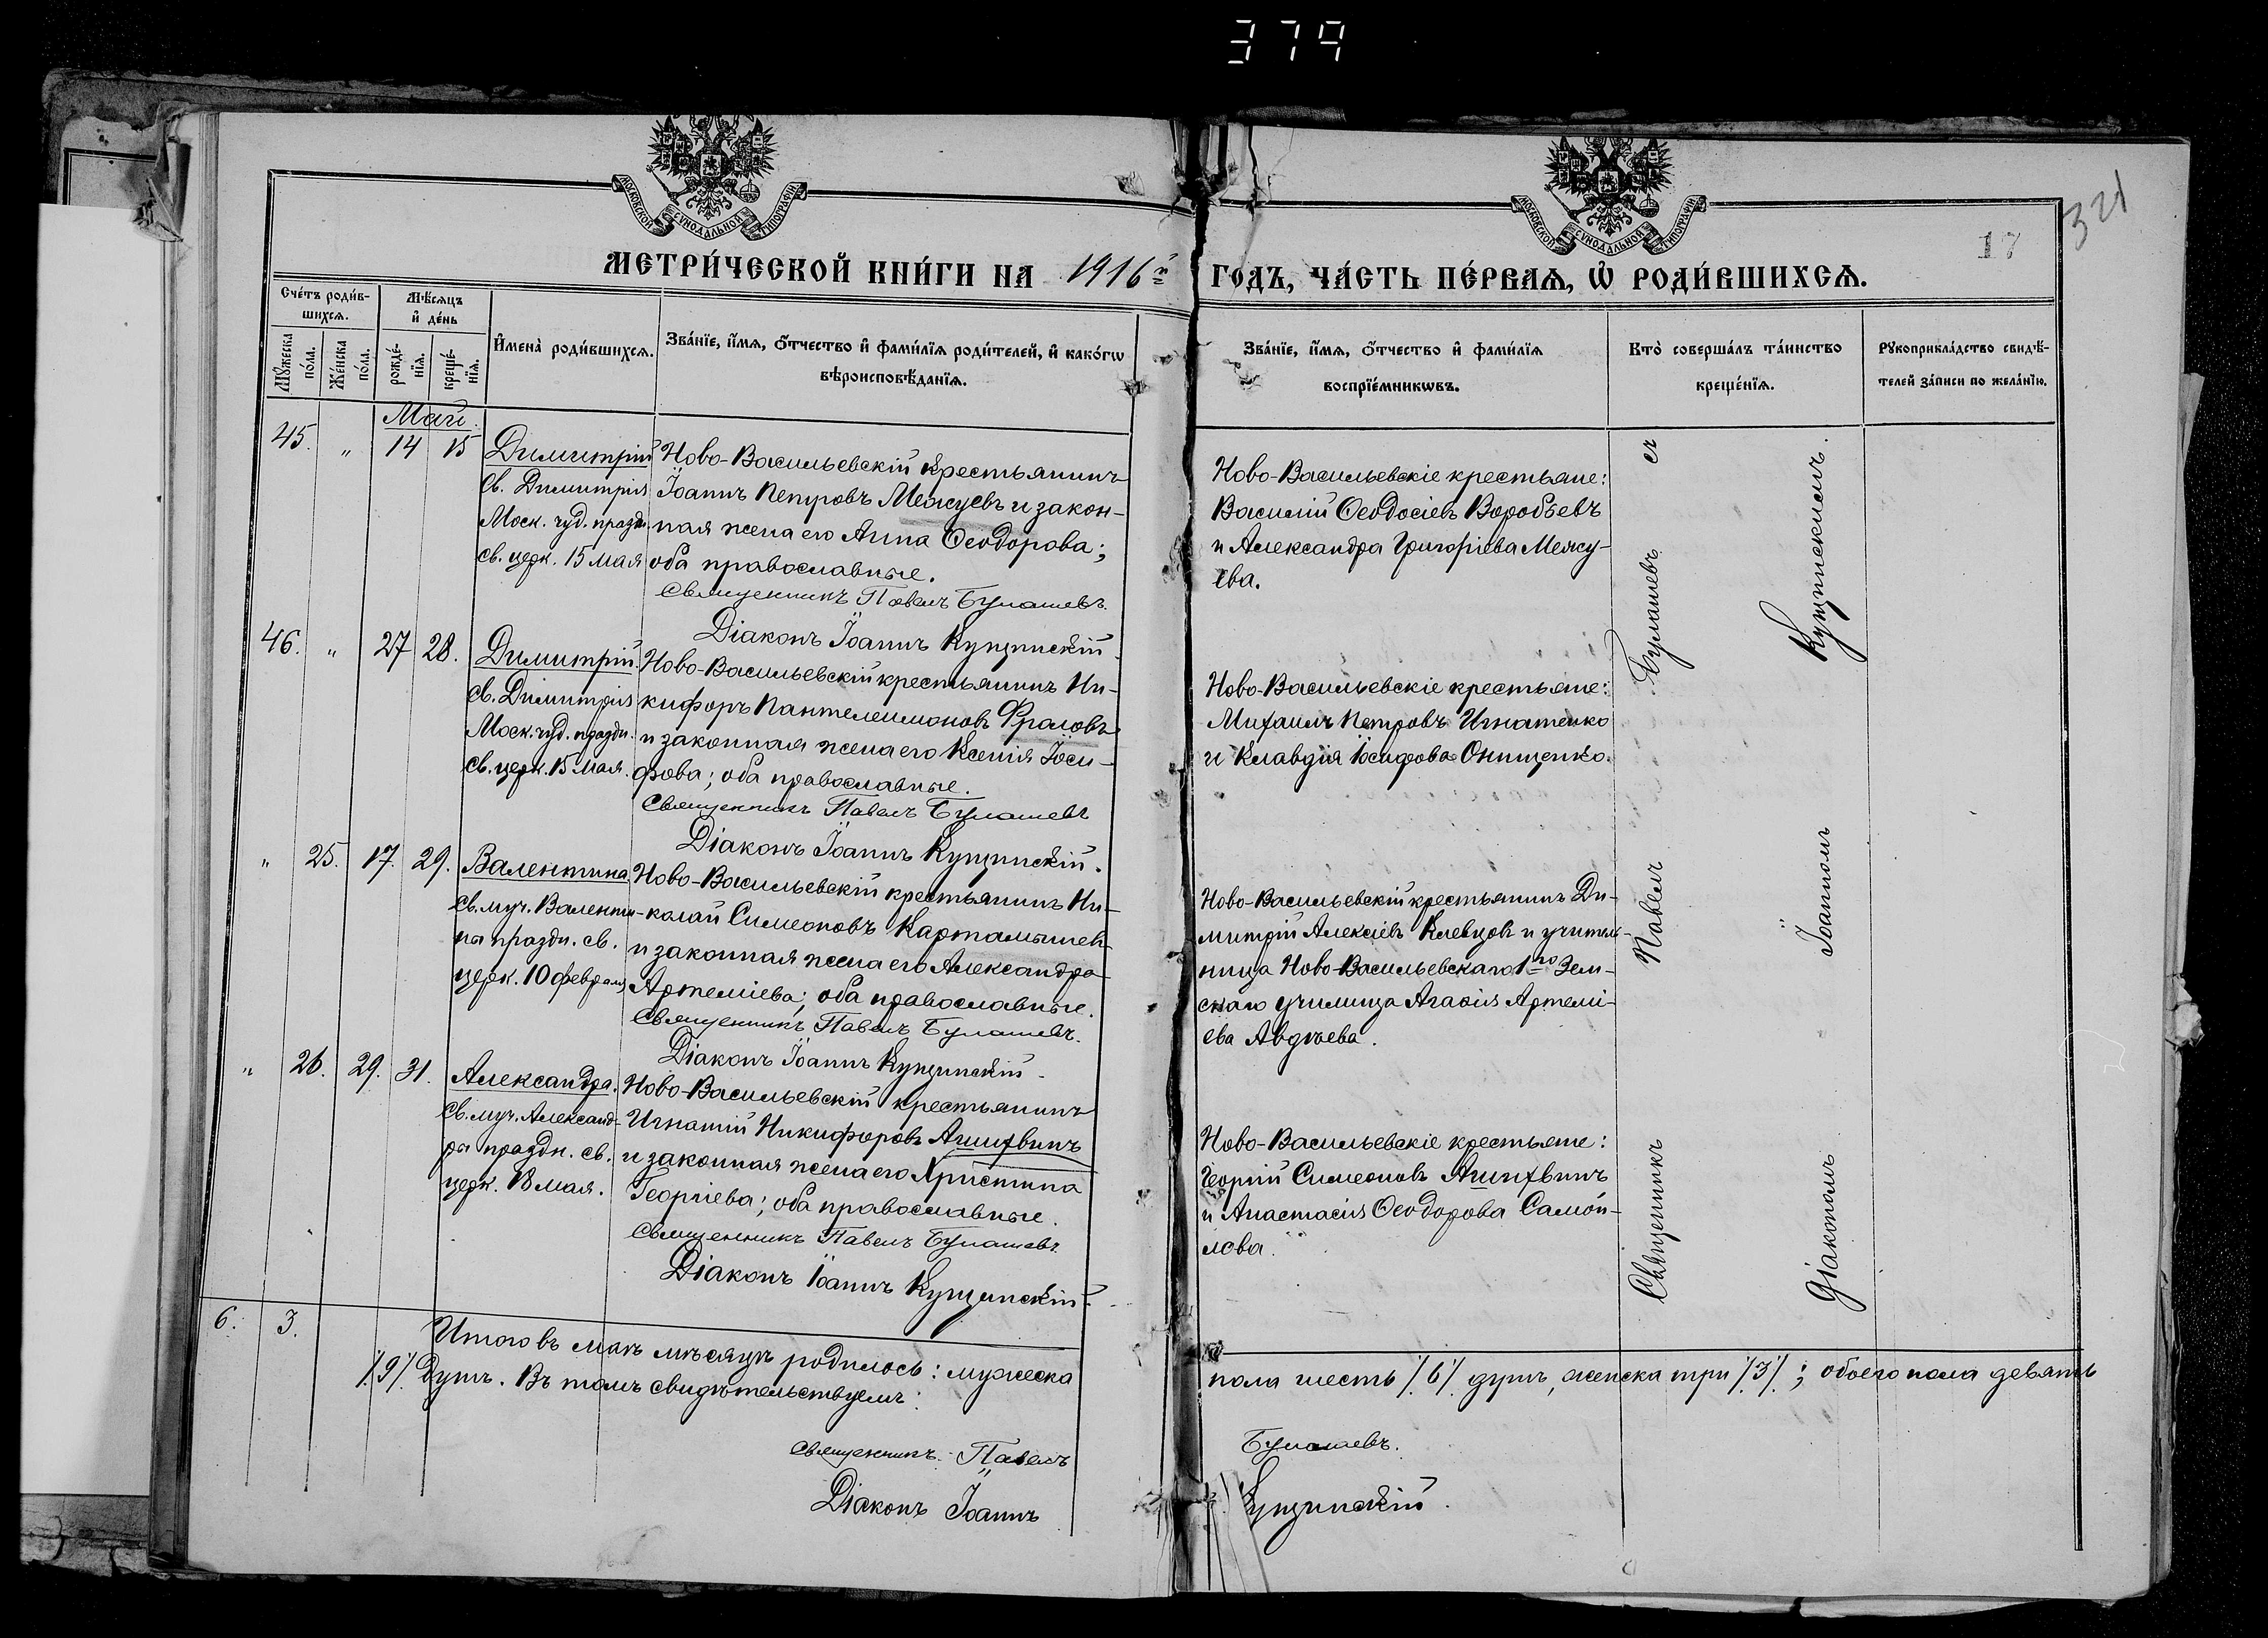 379
МОСКОВСКОЙ СѴНОДАЛЬНОЙ ТИПОГРАФІИ
МОСКОВСКОЙ СѴНОДАЛЬНОЙ ТИПОГРАФІИ
321
17
МЕТРИ́ЧЕСКОЙ КНИ́ГИ НА 1916й ГОДЪ, ЧА́СТЬ ПЕ́РВАЯ, Ѡ҆ РОДИ́ВШИХСЯ.
Сче́тъ роди́в-
шихся.
Мѣ́сяцъ
и҆ де́нь
Мꙋ́жеска
по́ла.
Же́нска
по́ла.
рожде́-
нїя.
креще́-
нїя.
И҆мена̀ роди́вшихся.
Зва́нїе, и҆́мя, ѻ҆́тчество и҆ фами́лїя роди́телей, и҆ како́гѡ
вѣроисповѣ́данїя.
Зва́нїе, и҆́мя, ѻ҆́тчество и҆ фами́лїя
воспрїе́мникѡвъ.
Кто̀ соверша́лъ та́инство
креще́нїя.
Рꙋкоприкла́дство свидѣ́-
телей за́писи по жела́нїю.
Май.
45. „ 14 15 Димитрій
св. Димитрія
Моск. чуд. праздн.
св. церк. 15 мая
Ново-Васильевскій крестьянинъ
Іоаннъ Петровъ Межуевъ и закон-
ная жена его Анна Ѳеодорова;
оба православные.
Священникъ Павелъ Булашевъ.
Діаконъ Іоаннъ Купчинскій.
Ново-Васильевскіе крестьяне:
Василій Ѳеодосіевъ Воробьевъ
и Александра Григоріева Межу-
ева.
46. „ 27 28. Димитрій.
св. Димитрія
Моск. чуд. праздн.
св. церк. 15 мая.
Ново-Васильевскій крестьянинъ Ни-
кифоръ Пантелеимоновъ Фроловъ
и законная жена его Ксенія Іоси-
фова; оба православные.
Священникъ Павелъ Булашевъ
Діаконъ Іоаннъ Купчинскій.
Ново-Васильевскіе крестьяне:
Михаилъ Петровъ Игнатенко
и Клавдія Іосифова Онищенко.
„ 25. 17. 29. Валентина
св. муч. Валенти-
ны праздн. св.
церк. 10 февраля
Ново-Васильевскій крестьянинъ Ни-
колай Симеоновъ Картамышев-
и законная жена его Александра
Артеміева; оба православные.
Священникъ Павелъ Булашевъ.
Діаконъ Іоаннъ Купчинскій.
Ново-Васильевскій крестьянинъ Ди-
митрій Алексіевъ Клевцовъ и учитель-
ница Ново-Васильевскаго 1го Зем-
скаго училища Агаѳія Артемі-
ева Авдѣева.
„ 26. 29. 31. Александра.
св. муч. Александ-
ры праздн. св.
церк. 18 мая.
Ново-Васильевскій крестьянинъ
Игнатій Никифоровъ Агиѳвинъ
и законная жена его Христина
Георгіева; оба православные.
Священникъ Павелъ Булашевъ.
Діаконъ Іоаннъ Купчинскій.
Ново-Васильевскіе крестьяне:
Георгій Симеоновъ
и Анастасія Ѳеодорова Самой-
лова.
Священникъ Павелъ Булашевъ съ
Діакономъ Іоанномъ Купчинскимъ.
6. 3. Итого въ маѣ мѣсяцѣ родилось: мужеска пола шесть /6/ душъ, женска три /3/; обоего пола девять
/9/ душъ. Въ томъ свидѣтельствуемъ:
Священникъ Павелъ Булашевъ.
Діаконъ Іоаннъ Купчинскій.